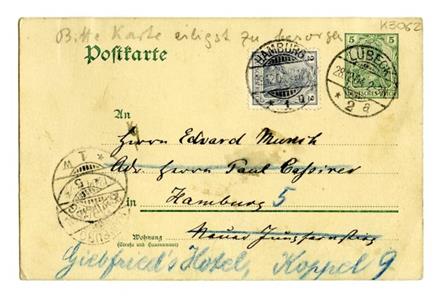 K3062
Bitte Karte eiligst zu besorgen
Postkarte
HAMBURG
* 1 n
LÜBECK
* 2 a
5 5
2 2
An
Herrn Edvard Munch
Adr. Herrn Paul Cassirer
in Hamburg 5
Wohnung
(Straße und Hausnummer)
Neuer Jungfernstieg
Giebfried's Hotel, Koppel 9